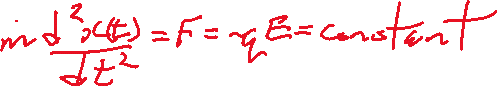 m d²x(t)/dt² = F = -qE = constant